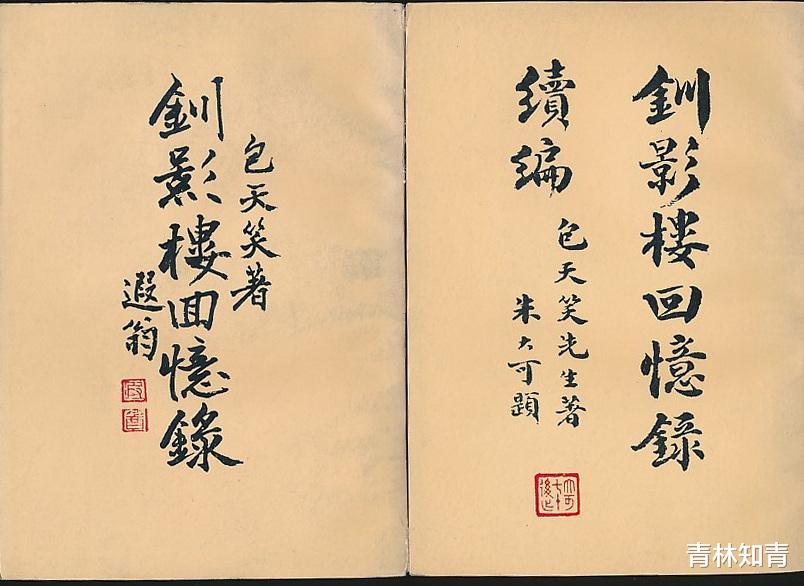 釧影樓回憶錄
續編
包天笑先生著
朱大可題
包天笑著
釧影樓回憶錄
遐翁
青林知青